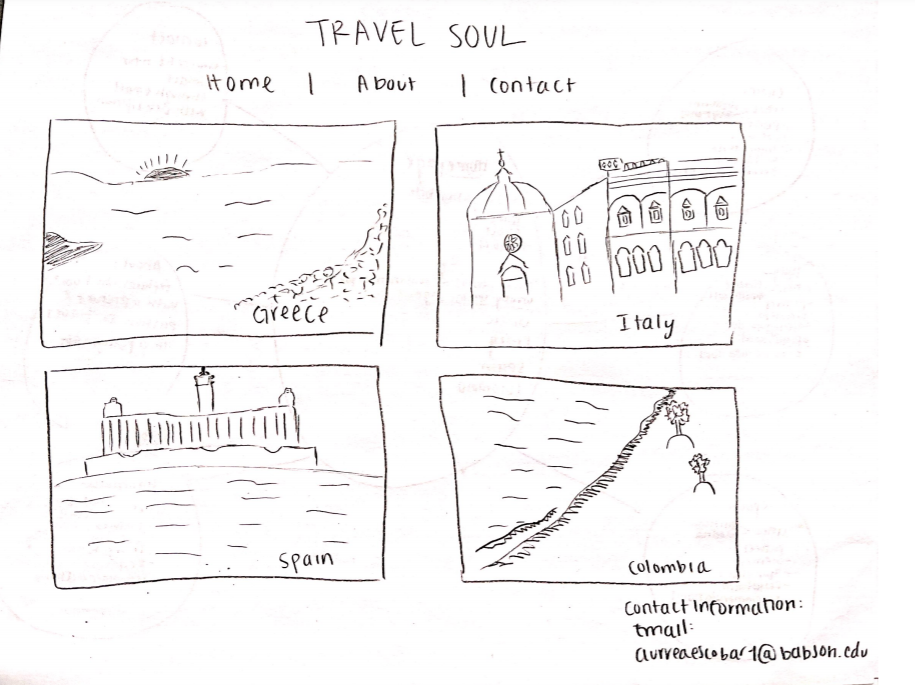 TRAVEL SOUL
Home | About | Contact
Greece
Italy
Spain
Colombia
Contact Information:
Email:
aurreaescobar1@babson.edu